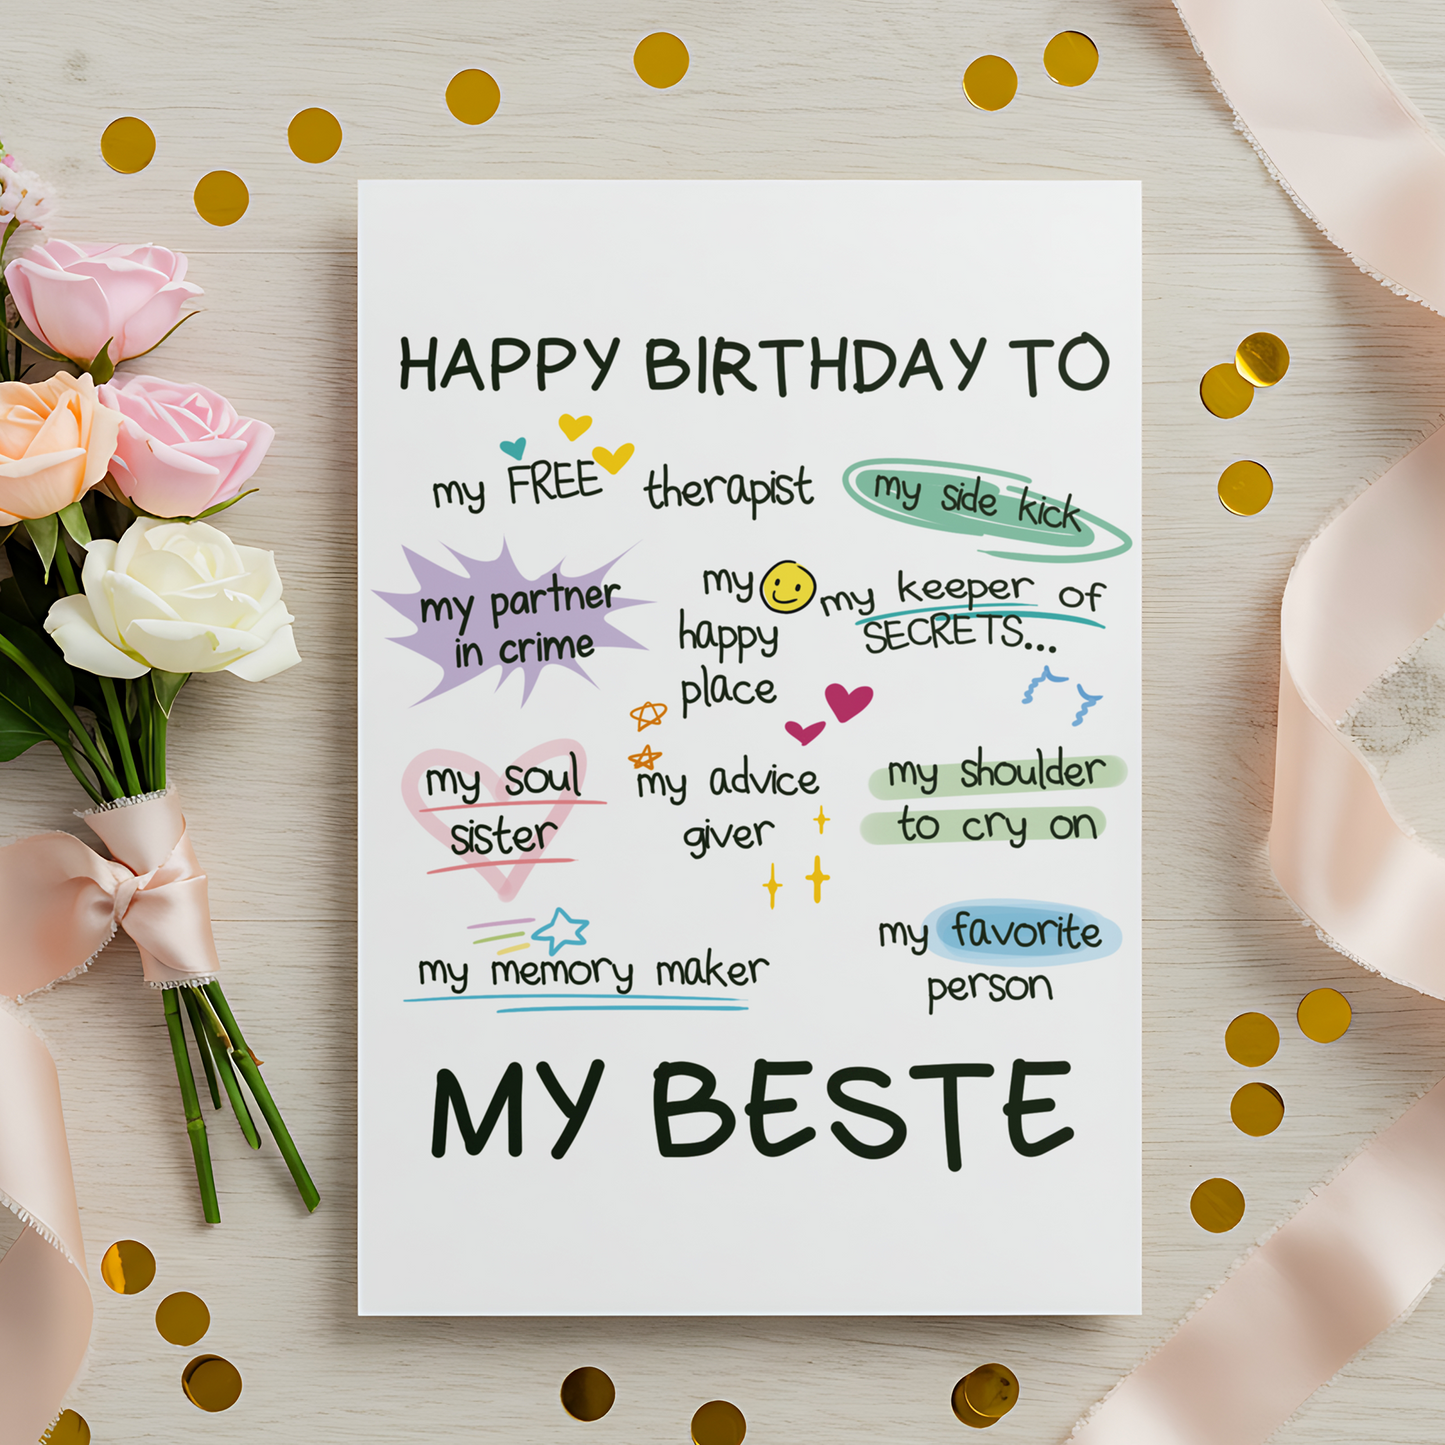 HAPPY BIRTHDAY TO
my FREE therapist
my side kick
my partner
in crime
my
happy
place
my keeper of
SECRETS...
my soul
sister
my advice
giver
my shoulder
to cry on
my memory maker
my favorite
person
MY BESTE